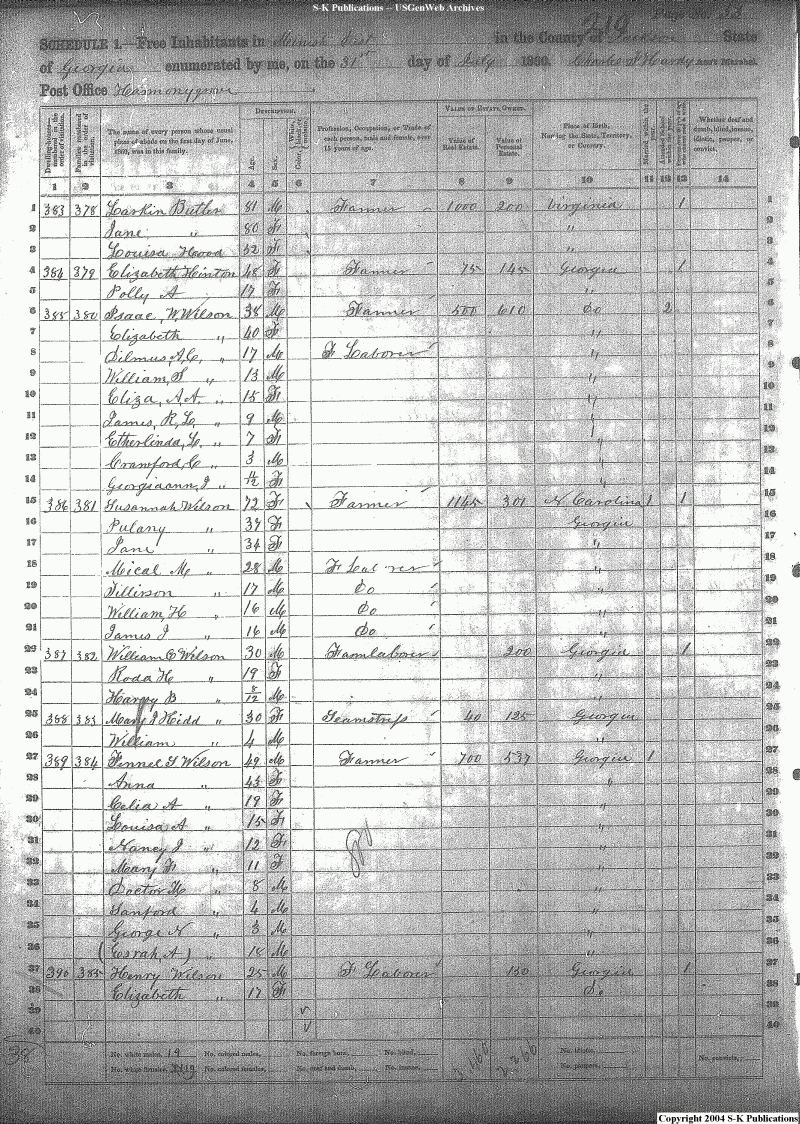 S-K Publications -- USGenWeb Archives
Page No. 33
219
SCHEDULE 1.—Free Inhabitants in Minish Dist in the County of Jackson State
of Georgia enumerated by me, on the 31st day of July 1860. Charles Hardy Ass't Marshal.
Post Office Harmonygrove
Dwelling-houses numbered in the order of visitation. Families numbered in the order of visitation. The name of every person whose usual place of abode on the first day of June, 1860, was in this family. Description. Age. Sex. Color Profession, Occupation, or Trade of each person, male and female, over 15 years of age. Value of Estate Owned. Value of Real Estate. Value of Personal Estate. Place of Birth, Naming the State, Territory, or Country. Married within the year. Attended School within the year. Whether deaf and dumb, blind, insane, idiotic, pauper, or convict.
1 2 3 4 5 6 7 8 9 10 11 12 13 14
1 383 378 Larkin Butler 81 M Farmer 1000 200 Virginia 1 1
2 Jane " 80 F " 2
3 Louisa Hood 52 F " 3
4 384 379 Elizabeth Hinton 48 F Farmer 75 145 Georgia 1 4
5 Polly A 17 F " 5
6 385 380 Isaac, W. Wilson 38 M Farmer 500 610 Do 2 6
7 Elizabeth " 40 F " 7
8 Silmus A.C, " 17 M F Laborer " 8
9 William, S " 13 M " 9
10 Eliza, A.A. " 15 F " 10
11 James, R, L, " 9 M " 11
12 Etherlinda, L, " 7 F " 12
13 Crawford, C " 3 M " 13
14 Georgiaann, J " F " 14
15 386 381 Susannah Wilson 72 F Farmer 1145 301 N Carolina 1 1 15
16 Pulany " 37 F Georgia 16
17 Jane " 34 F " 17
18 Mical M, " 28 M F Laborer " 18
19 Tillirson " 17 M Do " 19
20 William, H " 16 M Do " 20
21 James J " 16 M Do " 21
22 387 382 William C Wilson 30 M Farmlaborer 200 Georgia 1 22
23 Roda H " 19 F " 23
24 Harvy B " 8/12 M " 24
25 388 383 Mary J Kidd " 30 F Seamstress 40 125 Georgia 25
26 William " 4 M " 26
27 389 384 Fennel T Wilson 49 M Farmer 700 537 Georgia 1 27
28 Anna " 43 F " 28
29 Celia A " 19 F " 29
30 Louisa A " 15 F " 30
31 Nancy J " 12 F 31
32 Mary F " 11 F " 32
33 Doctor H " 8 M " 33
34 Sanford " 4 M " 34
35 George N " 3 M " 35
36 (Esrah, A) " 18 M " 36
37 390 385 Henry Wilson 25 M F Laborer 130 Georgia 1 37
38 Elizabeth " 17 F Do 38
39 39
40 40
38 No. white males, 19 No. colored males, No. foreign born, No. blind, 3,460 2,266 No. idiotic, No. convicts,
No. white females, 19 No. colored females, No. deaf and dumb, No. insane, No. paupers,
Copyright 2004 S-K Publications